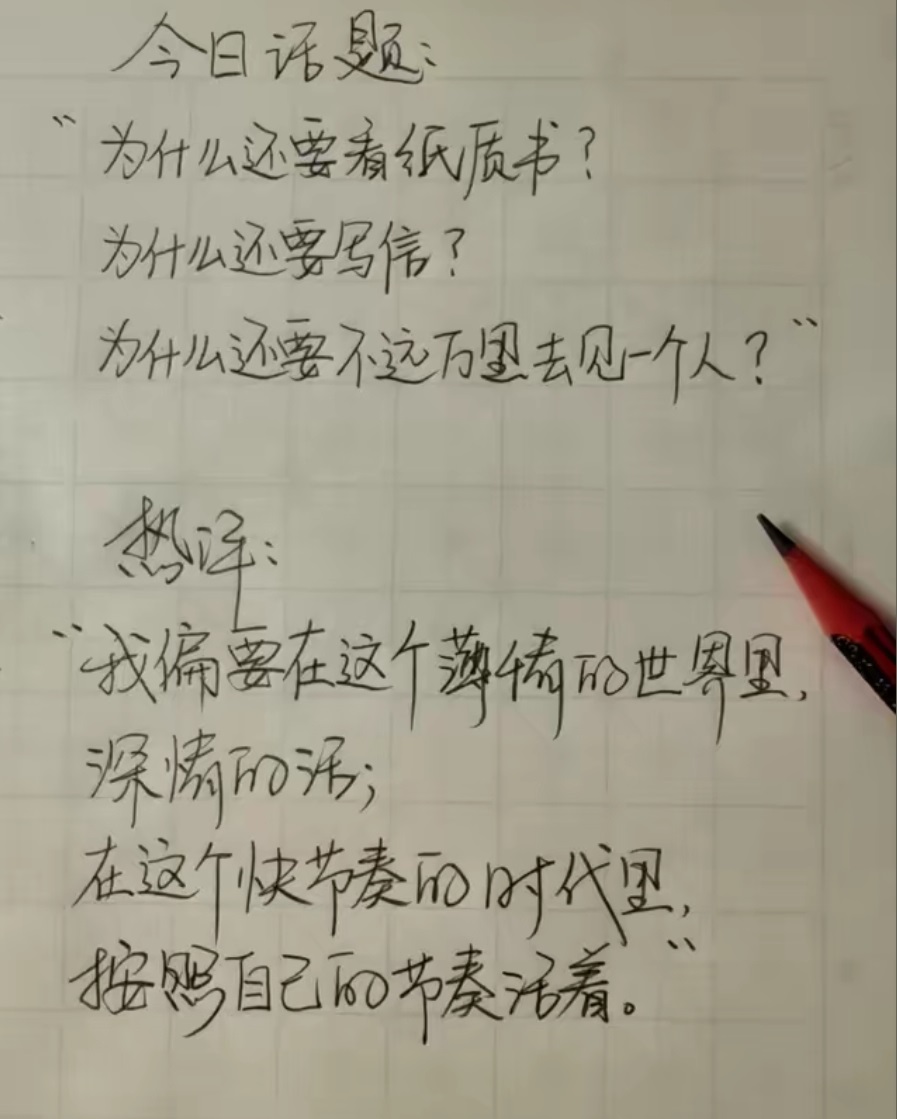 今日话题：
“为什么还要看纸质书？
为什么还要写信？
为什么还要不远万里去见一个人？”
热评：
“我偏要在这个薄情的世界里，
深情的活；
在这个快节奏的时代里，
按照自己的节奏活着。”